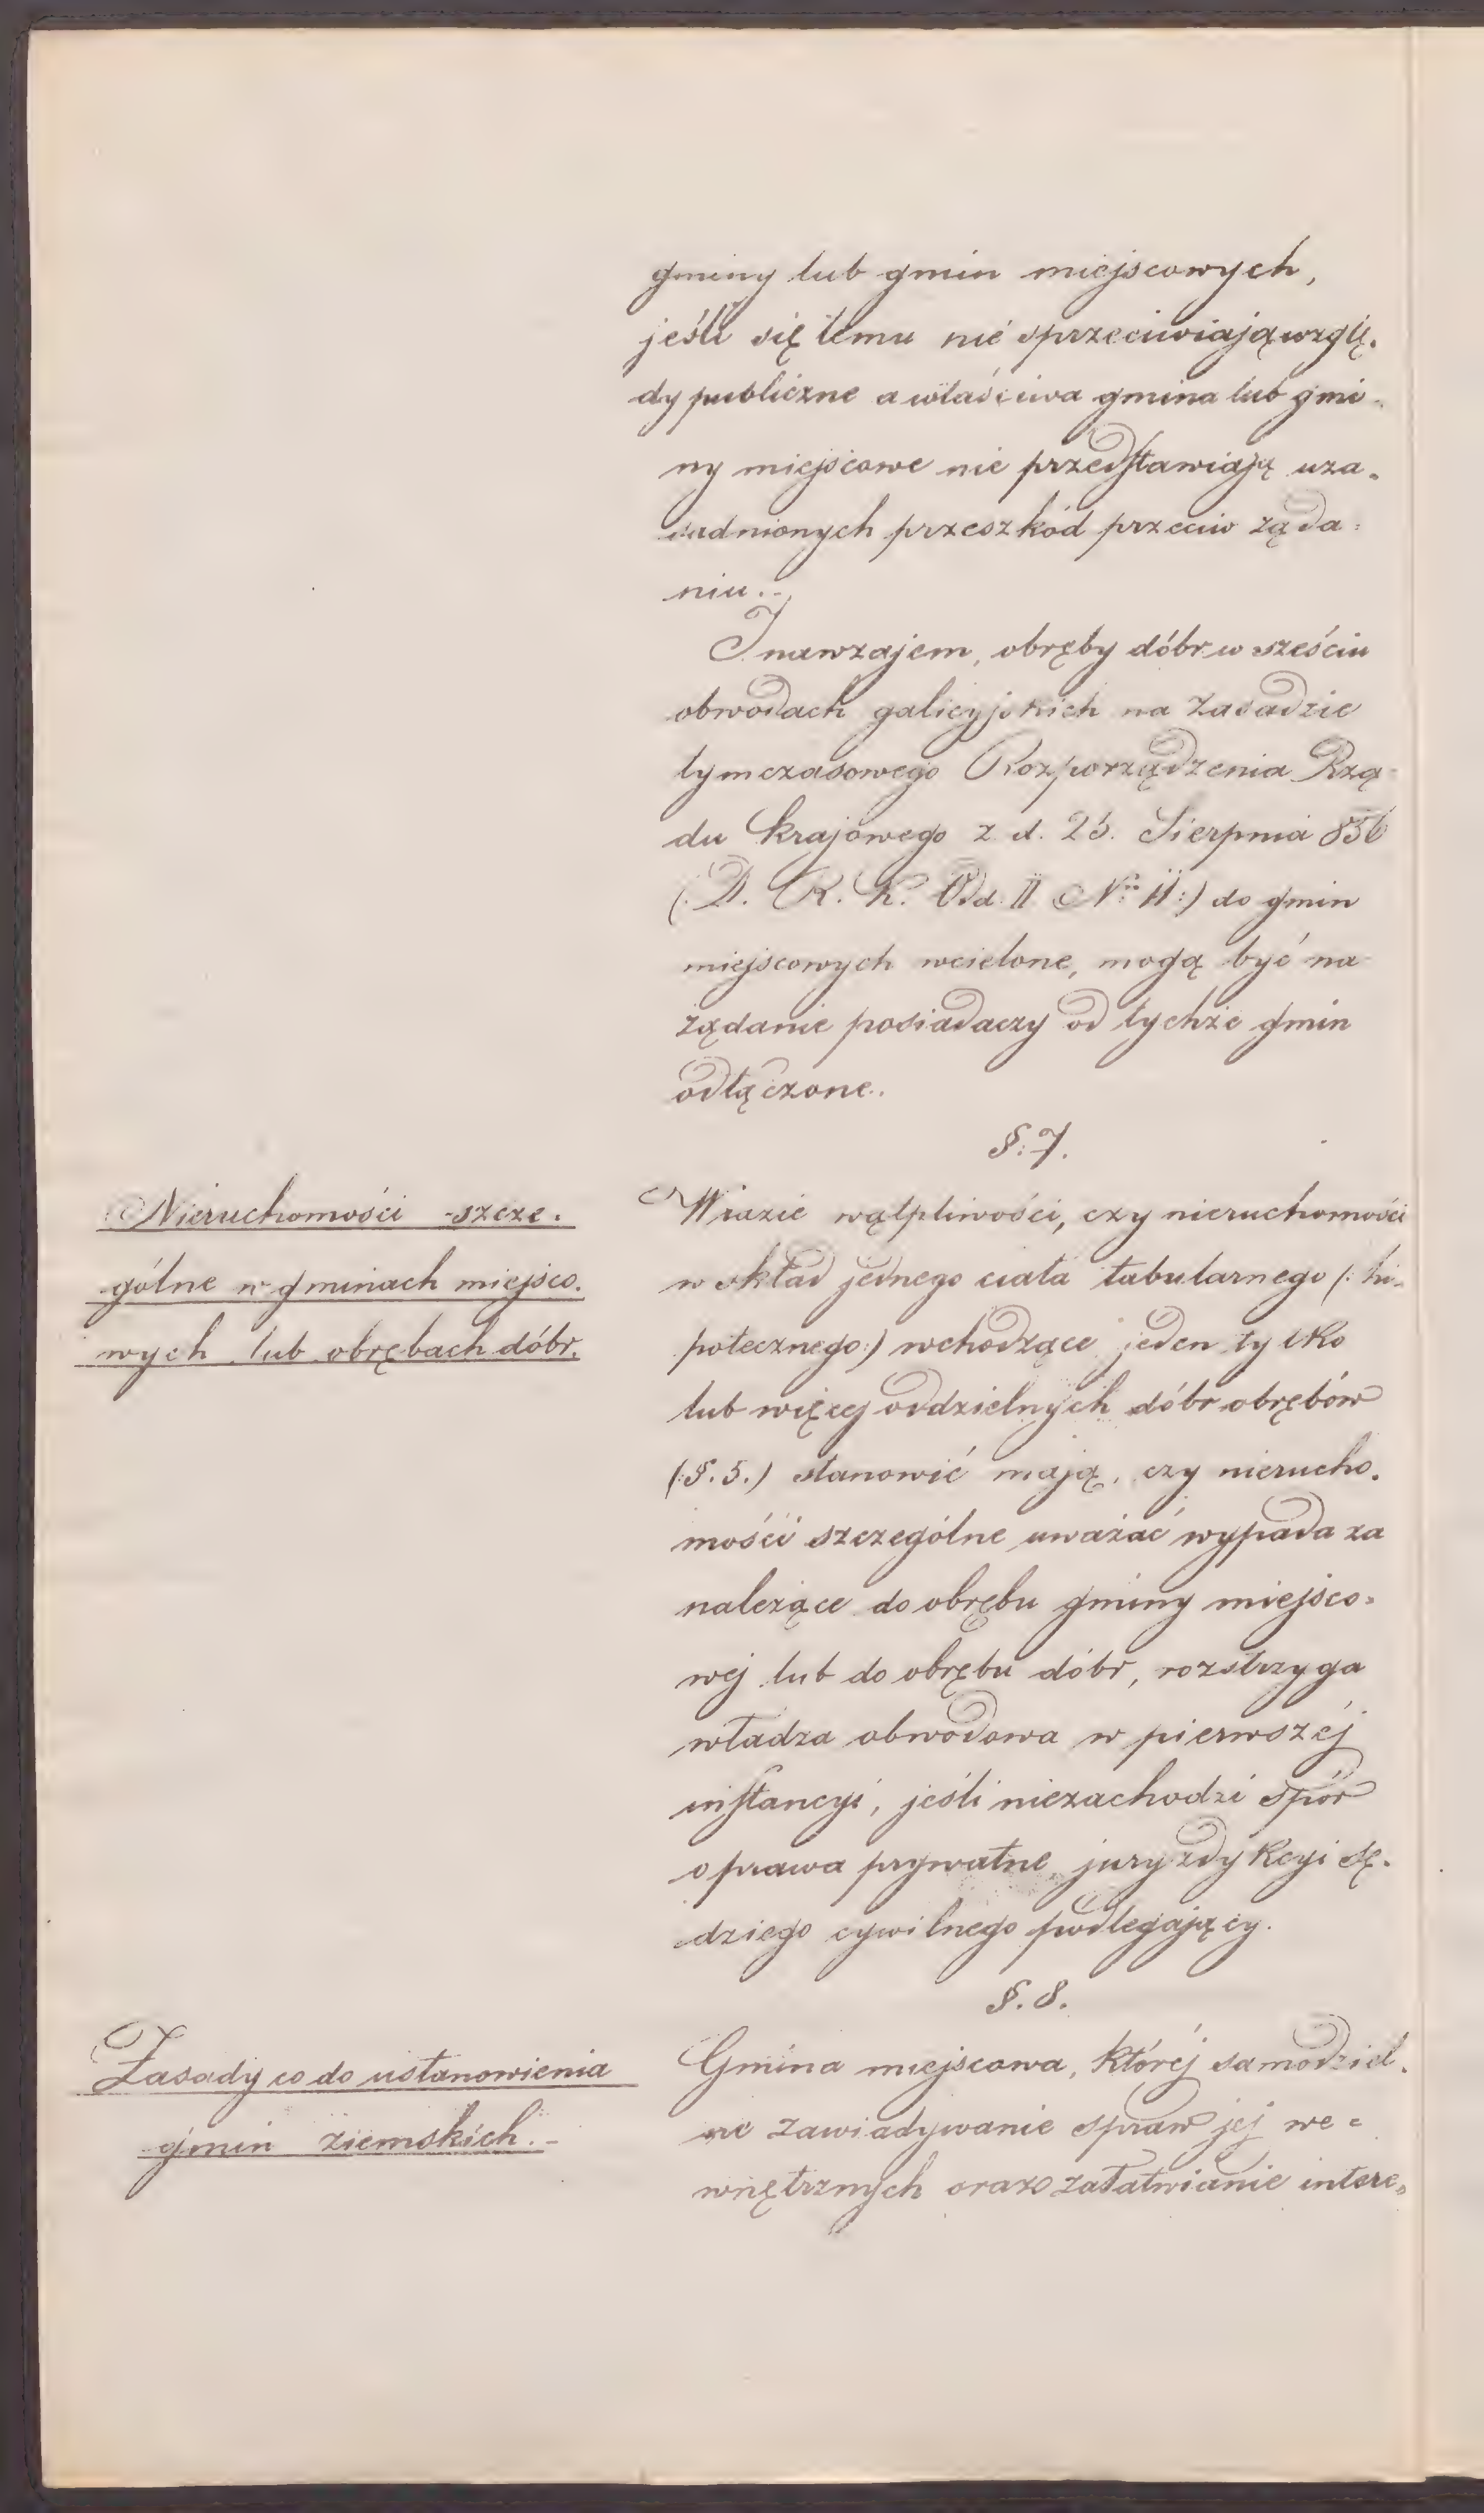 gminy lub gmin miejscowych,
jeśli się temu nie sprzeciwiają wzglę-
dy publiczne a właściwa gmina lub gmi-
ny miejscowe nie przedstawiają uza-
sadnionych przeszkód przeciw żąda-
niu.
I nawzajem, obręby dóbr w sześciu
obwodach galicyjskich na zasadzie
tymczasowego Rozporządzenia Rzą-
du krajowego z d. 23. Sierpnia 856
(: D. R. K. Odd. II Nr. 11:) do gmin
miejscowych wcielone, mogą być na
żądanie posiadaczy od tychże gmin
odłączone.
§. 7.
Nieruchomości szcze-
gólne w gminach miejsco-
wych lub obrębach dóbr.
W razie wątpliwości, czy nieruchomości
w skład jednego ciała tabularnego (: hi-
potecznego:) wchodzące jeden tylko
lub więcej oddzielnych dóbr obrębów
(:§. 5.) stanowić mają, czy nierucho-
mości szczególne uważać wypada za
należące do obrębu gminy miejsco-
wej lub do obrębu dóbr, rozstrzyga
władza obwodowa w pierwszéj
instancyi, jeśli niezachodzi spór
o prawa prywatne, juryzdykcyi sę-
dziego cywilnego podlegający.
§. 8.
Zasady co do ustanowienia
gmin ziemskich.
Gmina miejscowa, któréj samodziel-
ne zawiadywanie spraw jéj we-
wnętrznych oraz załatwianie intere-